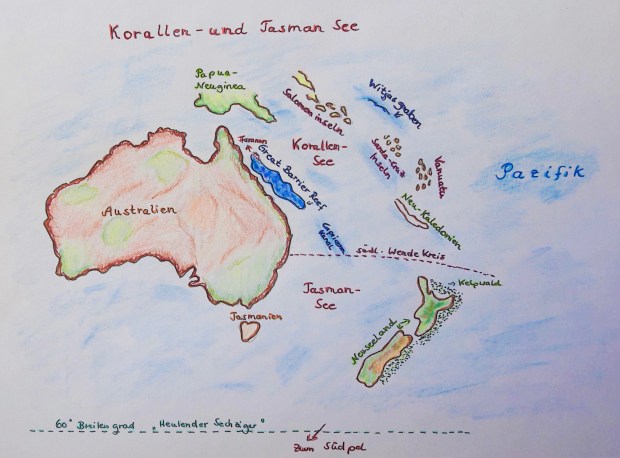 Korallen- und Tasman See
Papua-
Neuginea
Salomoninseln
Witjasgraben
Korallen-
See
Great Barrier Reef
Santa Cruz
Inseln
Vanuatu
Pazifik
Australien
Neu-Kaledonien
Capricorn
Kanal
südl. Wende Kreis
Tasman-
See
Kelpwald
Tasmanien
Neuseeland
60° Breitengrad "Heulender Sechziger"
Zum Südpol